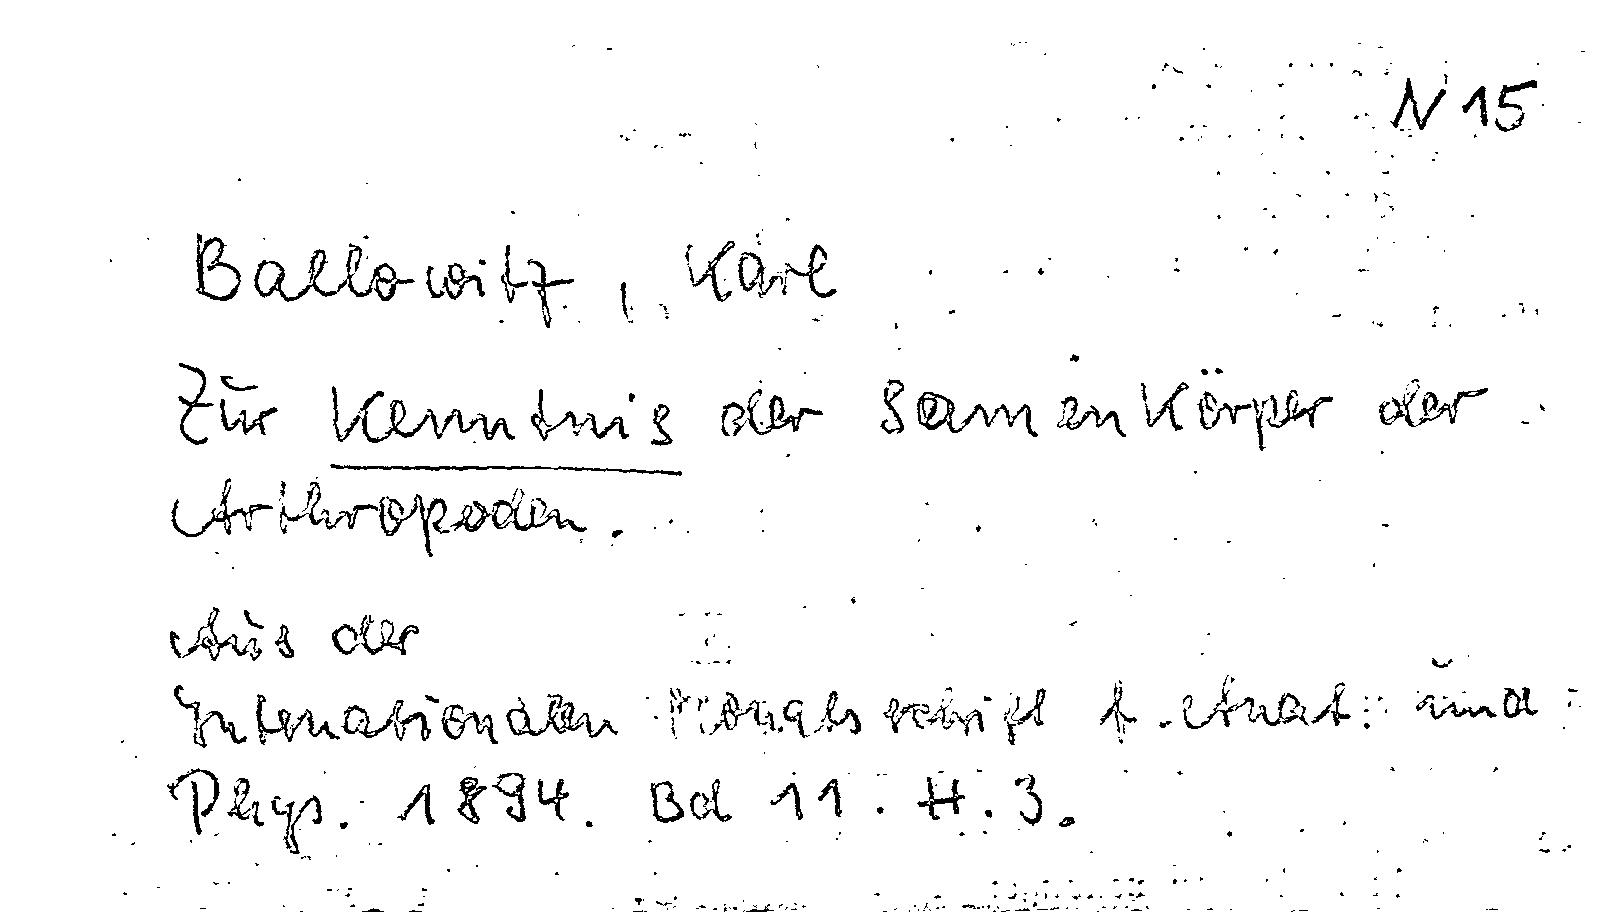 N 15
Ballowitz, Karl
Zur Kenntnis der Samenkörper der
Arthropoden.
Aus der
Internationalen Monatsschrift f. Anat. und
Phys. 1894. Bd 11. H. 3.